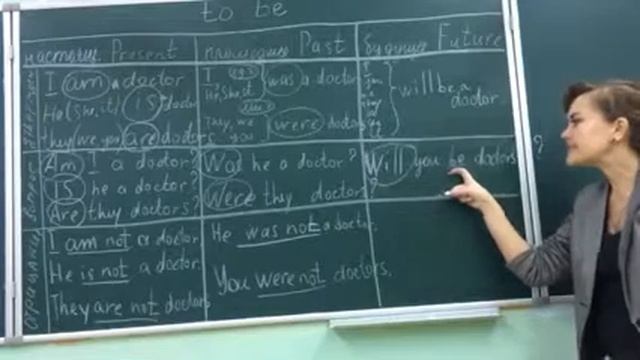 to be
настоящ. Present
прошедшее Past
будущее Future
I am a doctor
He (she, it) is doctor
they (we, you) are doctors
I
He, she, it
was a doctor
They, we
you
were doctors
I
you
will be a doctor
Am I a doctor?
Is he a doctor?
Are they doctors?
Was he a doctor?
Were they doctors?
Will you be doctors?
I am not a doctor
He is not a doctor.
They are not doctors
He was not a doctor.
You were not doctors.